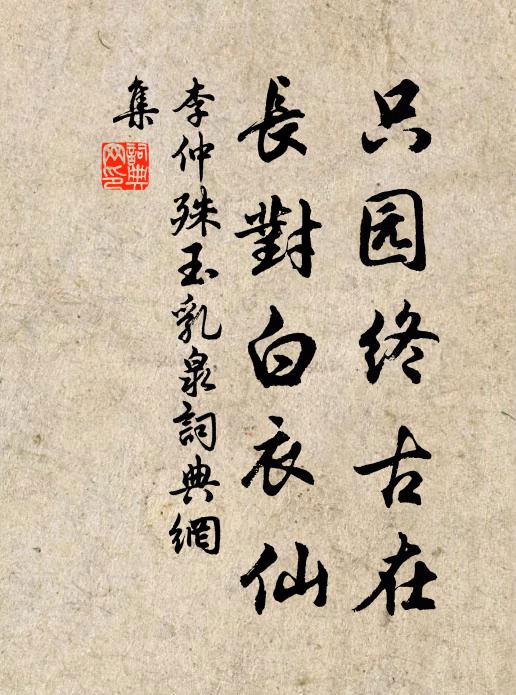 只园终古在
長對白衣仙
李仲殊玉乳泉詞典網
集
詞典网印